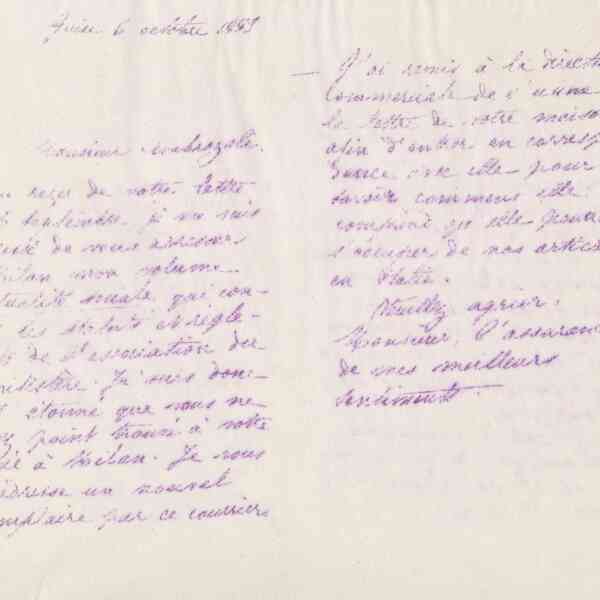 Guise 6 octobre 1883
Monsieur
reçu de votre lettre
je me suis
de vous adresser
Milan mon volume
Mutualité sociale, qui con-
les statuts et règle-
de l'association du
Familistère. Je suis donc
étonné que vous ne
point trouvé à votre
à Milan. Je vous
adresse un nouvel
exemplaire par ce courrier
— J'ai remis à la direct
commerciale de l'usine
la lettre de votre maison
afin d'entrer en corresp
dance avec elle pour
savoir comment elle
comprend qu'elle pourra
s'occuper de nos articles
en Italie.
Veuillez agréer,
Monsieur, l'assurance
de mes meilleurs
sentiments.